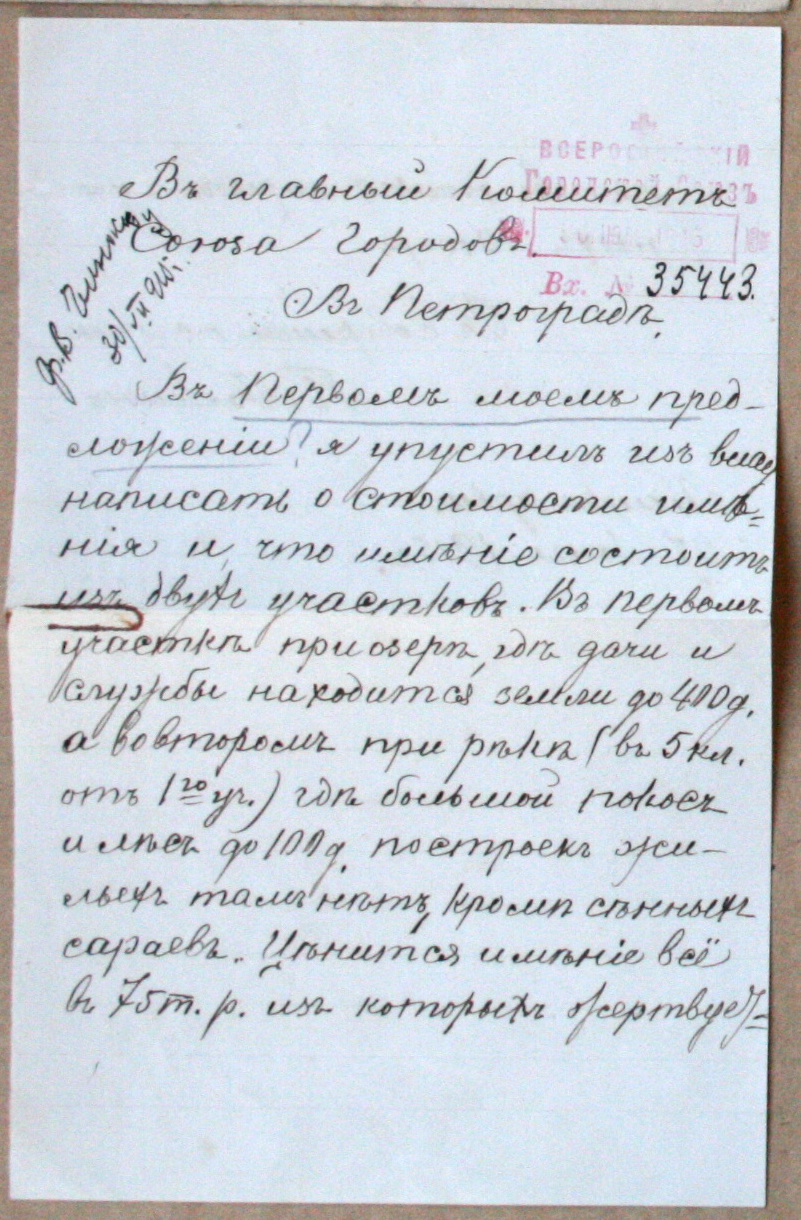 ВСЕРОССІЙСКІЙ
Городской Союзъ
Вх. № 35443.
Въ главный Комитетъ
Союза Городовъ.
Въ Петроградъ.
30/VII 915 г.
Въ Первомъ моемъ пред-
ложеніи ? я упустилъ изъ виду
написать о стоимости имѣ=
нія и, что имѣніе состоитъ
изъ двухъ участковъ. Въ первомъ
участкѣ при озерѣ, гдѣ дачи и
службы находится земли до 400 д.
а во второмъ при рѣкѣ (въ 5 кл.
отъ 1го уч.) гдѣ большой покосъ
и лѣсъ до 100 д. построекъ жи-
лыхъ тамъ нѣтъ, кромѣ сѣнныхъ
сараевъ. Цѣнится имѣніе всё
въ 75 т. р. изъ которыхъ жертвует=